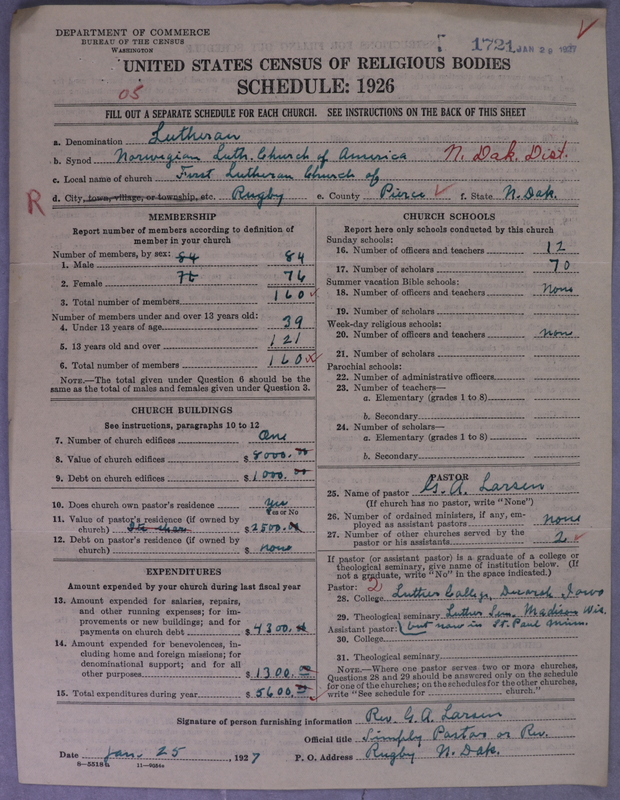 DEPARTMENT OF COMMERCE
BUREAU OF THE CENSUS
WASHINGTON
1721 JAN 28 1927
UNITED STATES CENSUS OF RELIGIOUS BODIES
SCHEDULE: 1926
05
FILL OUT A SEPARATE SCHEDULE FOR EACH CHURCH. SEE INSTRUCTIONS ON THE BACK OF THIS SHEET
a. Denomination Lutheran
b. Synod Norwegian Luth. Church of America N. Dak. Dist.
c. Local name of church First Lutheran Church of
R d. City, town, village, or township, etc. Rugby e. County Pierce f. State N. Dak.
MEMBERSHIP
Report number of members according to definition of
member in your church
Number of members, by sex: 84
1. Male 84
2. Female 76 76
3. Total number of members 160
Number of members under and over 13 years old:
4. Under 13 years of age 39
5. 13 years old and over 121
6. Total number of members 160
NOTE.—The total given under Question 6 should be the
same as the total of males and females given under Question 3.
CHURCH BUILDINGS
See instructions, paragraphs 10 to 12
7. Number of church edifices One
8. Value of church edifices $ 8000.00
9. Debt on church edifices $ 1000.00
10. Does church own pastor's residence Yes
Yes or No
11. Value of pastor's residence (if owned by
church) $ 2500.00
12. Debt on pastor's residence (if owned by
church) $ none
EXPENDITURES
Amount expended by your church during last fiscal year
13. Amount expended for salaries, repairs,
and other running expenses; for im-
provements or new buildings; and for
payments on church debt $ 4300.00
14. Amount expended for benevolences, in-
cluding home and foreign missions; for
denominational support; and for all
other purposes $ 1300.00
15. Total expenditures during year $ 5600.00
CHURCH SCHOOLS
Report here only schools conducted by this church
Sunday schools:
16. Number of officers and teachers 12
17. Number of scholars 70
Summer vacation Bible schools:
18. Number of officers and teachers none
19. Number of scholars
Week-day religious schools:
20. Number of officers and teachers none
21. Number of scholars
Parochial schools:
22. Number of administrative officers
23. Number of teachers—
a. Elementary (grades 1 to 8)
b. Secondary
24. Number of scholars—
a. Elementary (grades 1 to 8)
b. Secondary
PASTOR
25. Name of pastor G. A. Larsen
(If church has no pastor, write "None")
26. Number of ordained ministers, if any, em-
ployed as assistant pastors none
27. Number of other churches served by the
pastor or his assistants 2
If pastor (or assistant pastor) is a graduate of a college or
theological seminary, give name of institution below. (If
not a graduate, write "No" in the space indicated.)
Pastor: 2
28. College Luther College, Decorah, Iowa
29. Theological seminary Luther Sem. Madison Wis.
Assistant pastor: (but now in St. Paul Minn.
30. College
31. Theological seminary
NOTE.—Where one pastor serves two or more churches,
Questions 28 and 29 should be answered only on the schedule
for one of the churches; on the schedules for the other churches,
write "See schedule for church."
Signature of person furnishing information Rev. G. A. Larsen
Official title Simply Pastor or Rev.
Date Jan. 25, 1927 P. O. Address Rugby N. Dak.
8—5518a 11—9054a